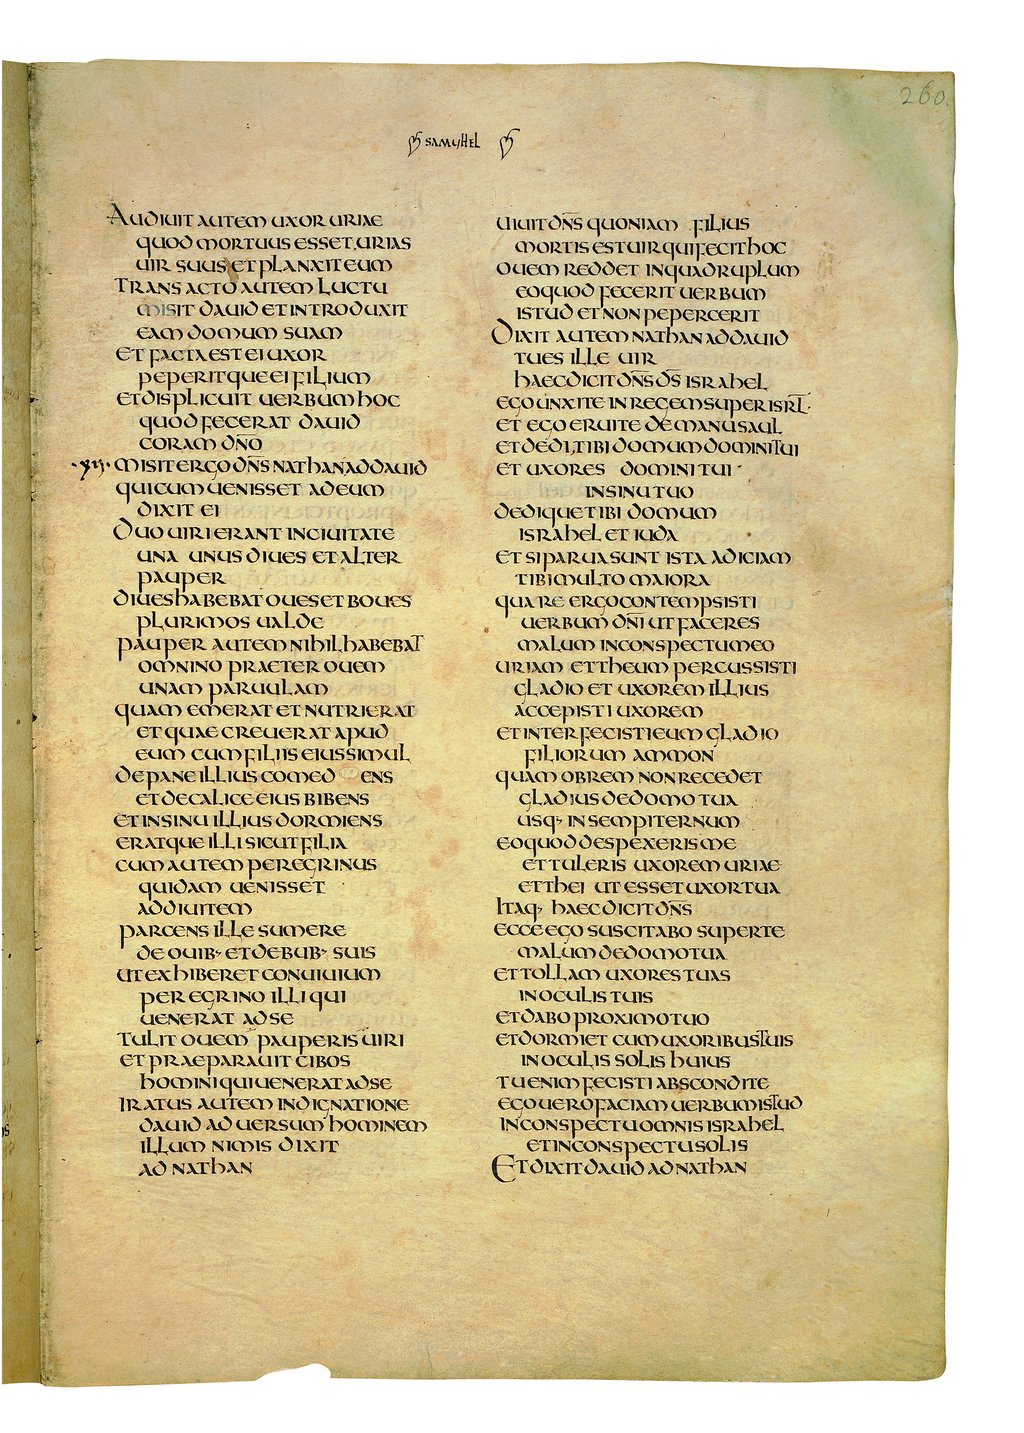 260.
SAMUHEL
AUDIUIT AUTEM UXOR URIAE
QUOD MORTUUS ESSET URIAS
UIR SUUS ET PLANXIT EUM
TRANSACTO AUTEM LUCTU
MISIT DAUID ET INTRODUXIT
EAM DOMUM SUAM
ET FACTA EST EI UXOR
PEPERITQUE EI FILIUM
ET DISPLICUIT UERBUM HOC
QUOD FECERAT DAUID
CORAM DN̄O
·XII· MISIT ERGO DN̄S NATHAN AD DAUID
QUI CUM UENISSET AD EUM
DIXIT EI
DUO UIRI ERANT IN CIUITATE
UNA UNUS DIUES ET ALTER
PAUPER
DIUES HABEBAT OUES ET BOUES
PLURIMOS UALDE
PAUPER AUTEM NIHIL HABEBAT
OMNINO PRAETER OUEM
UNAM PARUULAM
QUAM EMERAT ET NUTRIERAT
ET QUAE CREUERAT APUD
EUM CUM FILIIS EIUS SIMUL
DE PANE ILLIUS COMEDENS
ET DE CALICE EIUS BIBENS
ET IN SINU ILLIUS DORMIENS
ERATQUE ILLI SICUT FILIA
CUM AUTEM PEREGRINUS
QUIDAM UENISSET
AD DIUITEM
PARCENS ILLE SUMERE
DE OUIB· ET DE BUB· SUIS
UT EXHIBERET CONUIUIUM
PEREGRINO ILLI QUI
UENERAT AD SE
TULIT OUEM PAUPERIS UIRI
ET PRAEPARAUIT CIBOS
HOMINI QUI UENERAT AD SE
IRATUS AUTEM INDIGNATIONE
DAUID ADUERSUM HOMINEM
ILLUM NIMIS DIXIT
AD NATHAN
UIUIT DN̄S QUONIAM FILIUS
MORTIS EST UIR QUI FECIT HOC
OUEM REDDET IN QUADRUPLUM
EO QUOD FECERIT UERBUM
ISTUD ET NON PEPERCERIT
DIXIT AUTEM NATHAN AD DAUID
TU ES ILLE UIR
HAEC DICIT DN̄S D̄S ISRAHEL
EGO UNXI TE IN REGEM SUPER ISRL̄·
ET EGO ERUI TE DE MANU SAUL
ET DEDI TIBI DOMUM DOMINI TUI
ET UXORES DOMINI TUI
IN SINU TUO
DEDIQUE TIBI DOMUM
ISRAHEL ET IUDA
ET SI PARUA SUNT ISTA ADICIAM
TIBI MULTO MAIORA
QUARE ERGO CONTEMPSISTI
UERBUM DN̄I UT FACERES
MALUM IN CONSPECTU MEO
URIAM ETTHEUM PERCUSSISTI
GLADIO ET UXOREM ILLIUS
ACCEPISTI UXOREM
ET INTERFECISTI EUM GLADIO
FILIORUM AMMON
QUAM OB REM NON RECEDET
GLADIUS DE DOMO TUA
USQ· IN SEMPITERNUM
EO QUOD DESPEXERIS ME
ET TULERIS UXOREM URIAE
ETTHEI UT ESSET UXOR TUA
ITAQ· HAEC DICIT DN̄S
ECCE EGO SUSCITABO SUPER TE
MALUM DE DOMO TUA
ET TOLLAM UXORES TUAS
IN OCULIS TUIS
ET DABO PROXIMO TUO
ET DORMIET CUM UXORIBUS TUIS
IN OCULIS SOLIS HUIUS
TU ENIM FECISTI ABSCONDITE
EGO UERO FACIAM UERBUM ISTUD
IN CONSPECTU OMNIS ISRAHEL
ET IN CONSPECTU SOLIS
ET DIXIT DAUID AD NATHAN